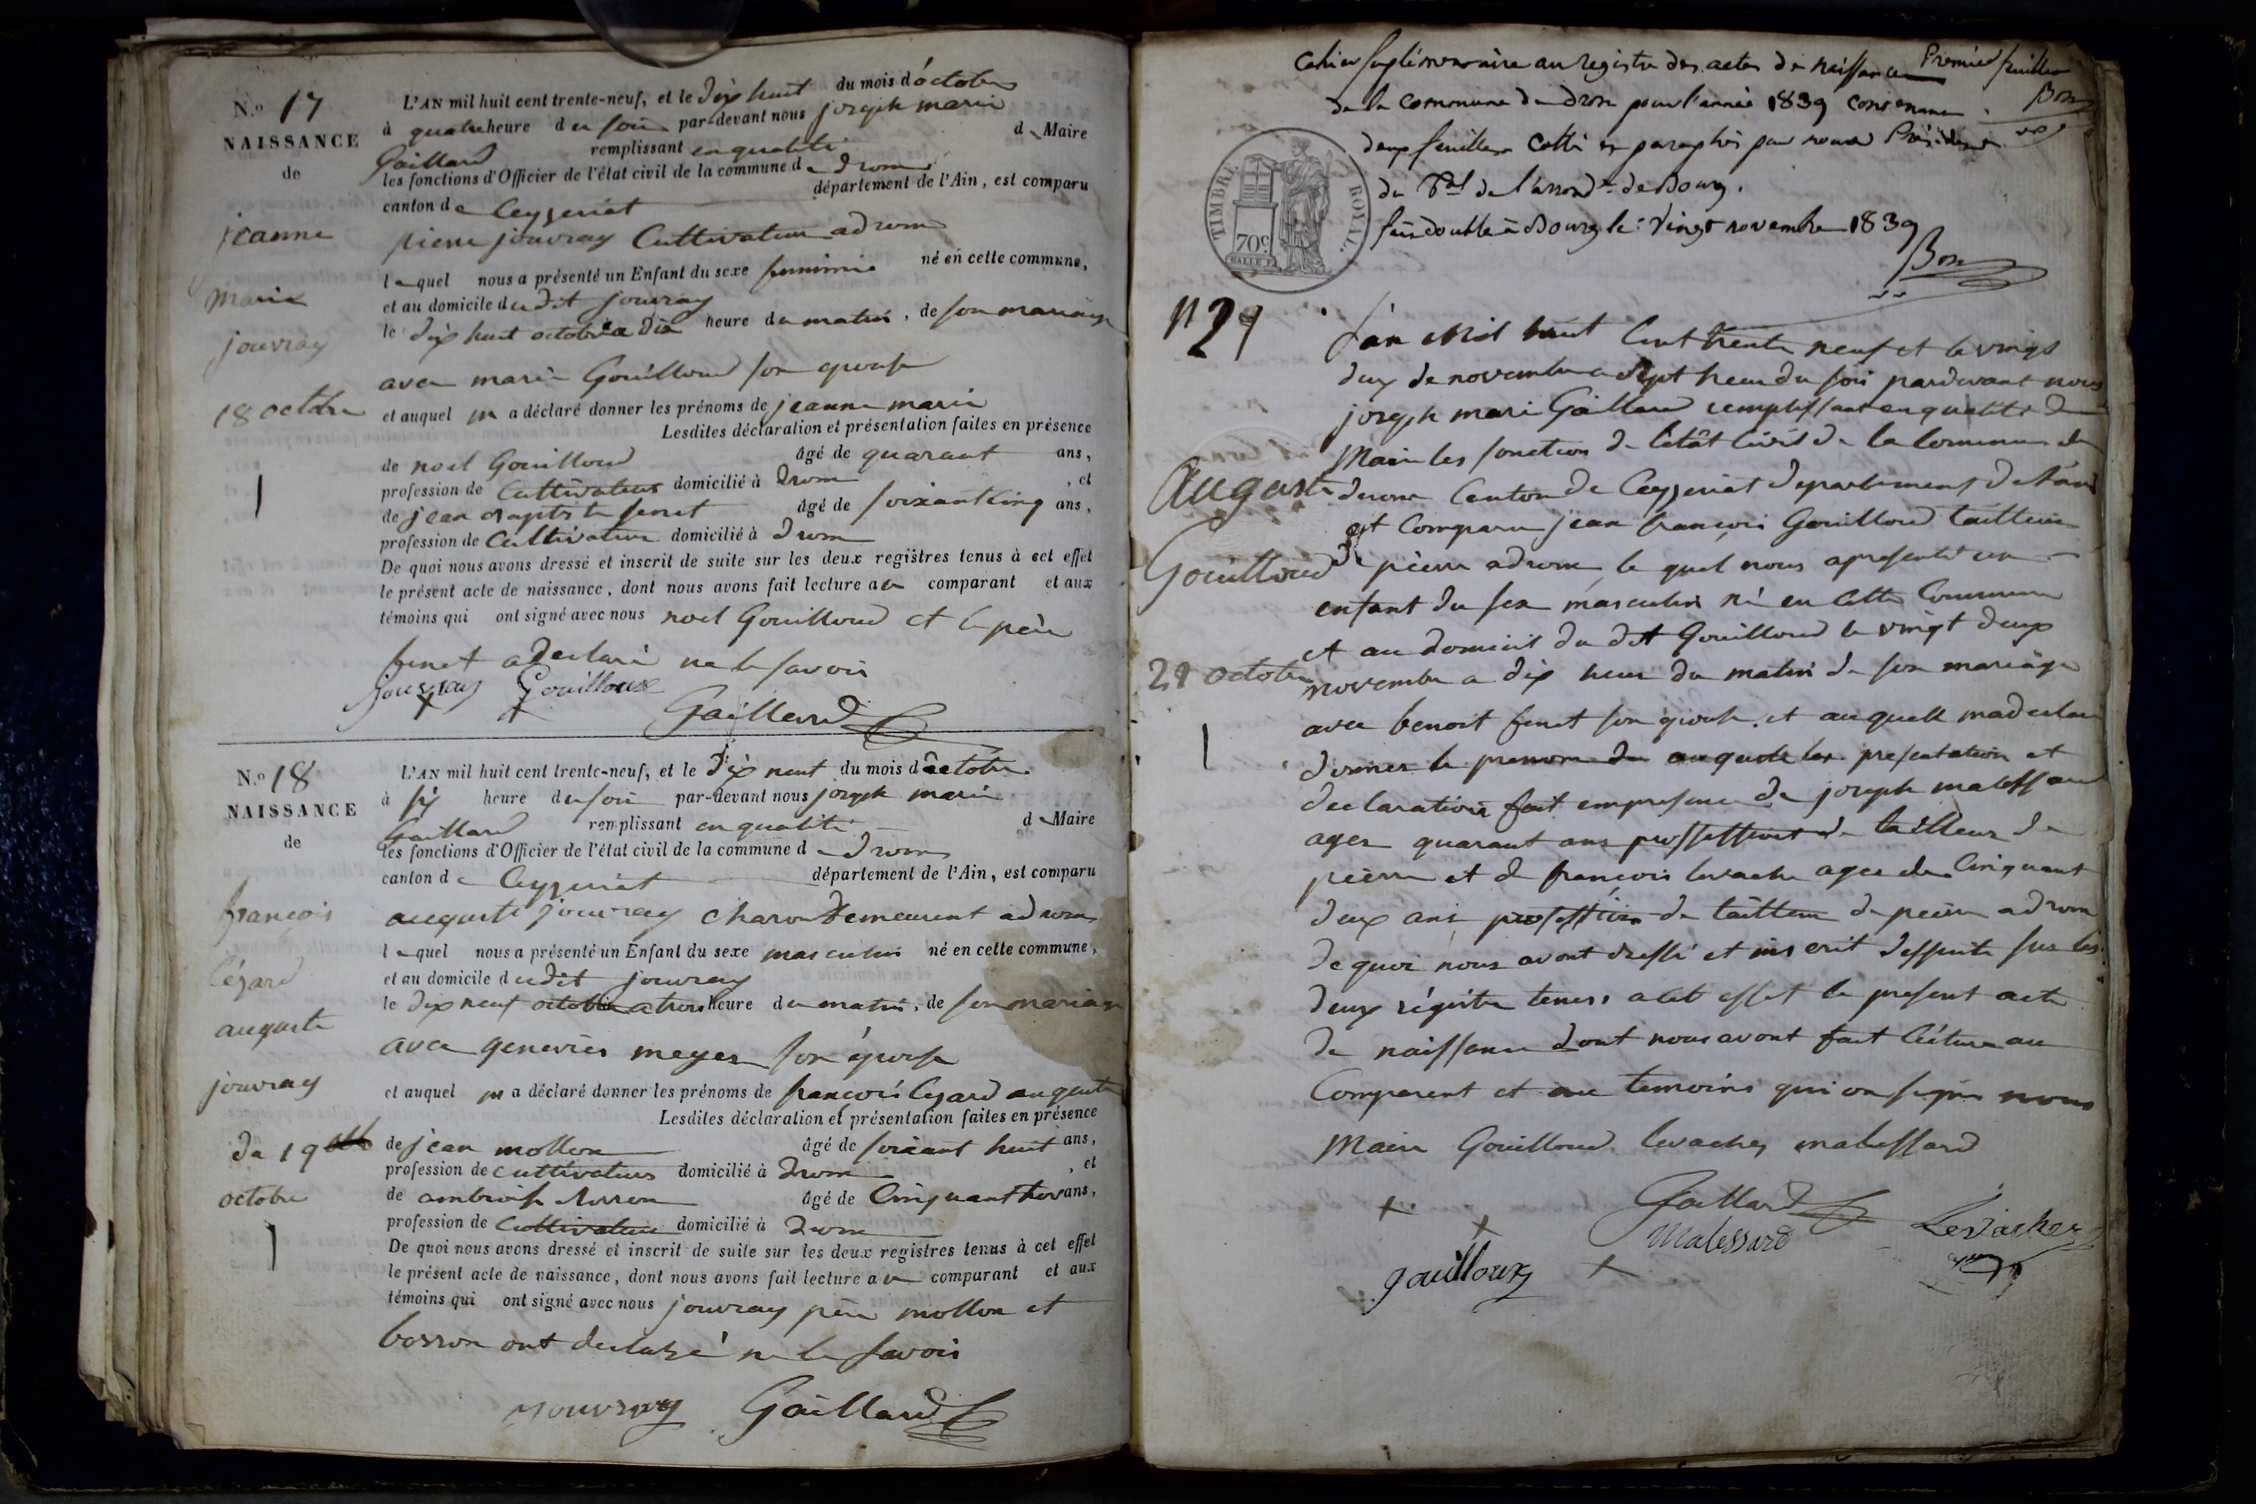 N.o 17
NAISSANCE
de
jeanne
marie
jouvray
18 octobre
1
L'AN mil huit cent trente-neuf, et le dix huit du mois d'octobre
à quatre heure du soir par-devant nous joseph marie
Gaillard remplissant en qualité de Maire
les fonctions d'Officier de l'état civil de la commune de drom
canton de Ceyzeriat département de l'Ain, est comparu
pierre jouvray Cultivateur a drom
lequel nous a présenté un Enfant du sexe feminin né en cette commune,
et au domicile dudit jouvray
le dix huit octobre a dix heure du matin, de son mariage
avec marie Gouilloud son epouse
et auquel m a déclaré donner les prénoms de jeanne marie
Lesdites déclaration et présentation faites en présence
de noel Gouilloud âgé de quarant ans,
profession de Cultivateur domicilié à drom, et
de jean âgé de soixant cinq ans,
profession de Cultivateur domicilié à drom
De quoi nous avons dressé et inscrit de suite sur les deux registres tenus à cet effet
le présent acte de naissance, dont nous avons fait lecture au comparant et aux
témoins qui ont signé avec nous noel Gouilloud et le père
a declaré ne le savoir
jouvray Gouilloux
Gaillard
N.o 18
NAISSANCE
de
françois
Cézard
auguste
jouvray
du 19
octobre
1
L'AN mil huit cent trente-neuf, et le dix neuf du mois d'octobre
à six heure du soir par-devant nous joseph marie
Gaillard remplissant en qualité de Maire
les fonctions d'Officier de l'état civil de la commune de drom
canton de Ceyzeriat département de l'Ain, est comparu
auguste jouvray charon demeurent a drom
lequel nous a présenté un Enfant du sexe masculin né en cette commune,
et au domicile dudit jouvray
le dix neuf octobre a trois heure du matin, de son mariage
avec genevies meyer son épouse
et auquel m a déclaré donner les prénoms de françois Cezard auguste
Lesdites déclaration et présentation faites en présence
de jean mollon âgé de soixant huit ans,
profession de Cultivateur domicilié à drom, et
de ambroise âgé de Cinquant trois ans,
profession de Cultivateur domicilié à drom
De quoi nous avons dressé et inscrit de suite sur les deux registres tenus à cet effet
le présent acte de naissance, dont nous avons fait lecture au comparant et aux
témoins qui ont signé avec nous jouvray père mollon et
borron ont declaré ne le savoir
jouvray Gaillard
Cahier suplémentaire au registre des actes de naissance Premier feuillet
de la commune de drom pour l'année 1839 contenant Bon
deux feuillets cotté et paraphés par nous Président
du Tal de l'arrondt de Bourg.
fait double à Bourg le vingt novembre 1839
Bon
TIMBRE ROYAL.
70c
n 21
Auguste
Gouilloud
1
L'an Mil huit Cent trente neuf et le vingt
deux de novembre a sept heur du soir pardevant nous
joseph marie Gaillard remplissant en qualité de
Maire les fonction de l'etât Civil de la Commune de
drom Canton de Ceyzeriat departement de l'ain
est Comparu jean françois Gouilloud tailleur
de pierre a drom, le quel nous a presenté un
enfant du sex masculin né en Cette Commune
et au domicil du dit Gouilloud le vingt deux
novembre a dix heur du matin de son mariage
avec benoit son epouse. et auquell m a declaré
donner le prenom de auguste les presentation et
declaration fait en presence de joseph malessard
ager quarant ans proffession de tailleur de
pierre et de françois levacher ager de Cinquant
deux ans proffession de tailleur de pierre a drom
de quoi nous avont dressé et inscrit de suite sur les
deux régistre tenus a cet effet le present acte
de naissance dont nous avont fait lécture au
Comparent et au temoins qui on signé nous
Maire Gouilloud levacher malessard
Gaillard
Malessard Levacher
gouilloux